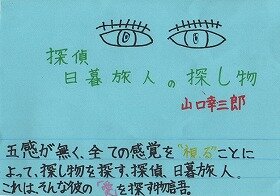 探偵
日暮旅人の探し物
山口幸三郎
五感が無く、全ての感覚を"視る"ことに
よって、探し物を探す、探偵、日暮旅人。
これは、そんな彼の"愛"を探す物語。